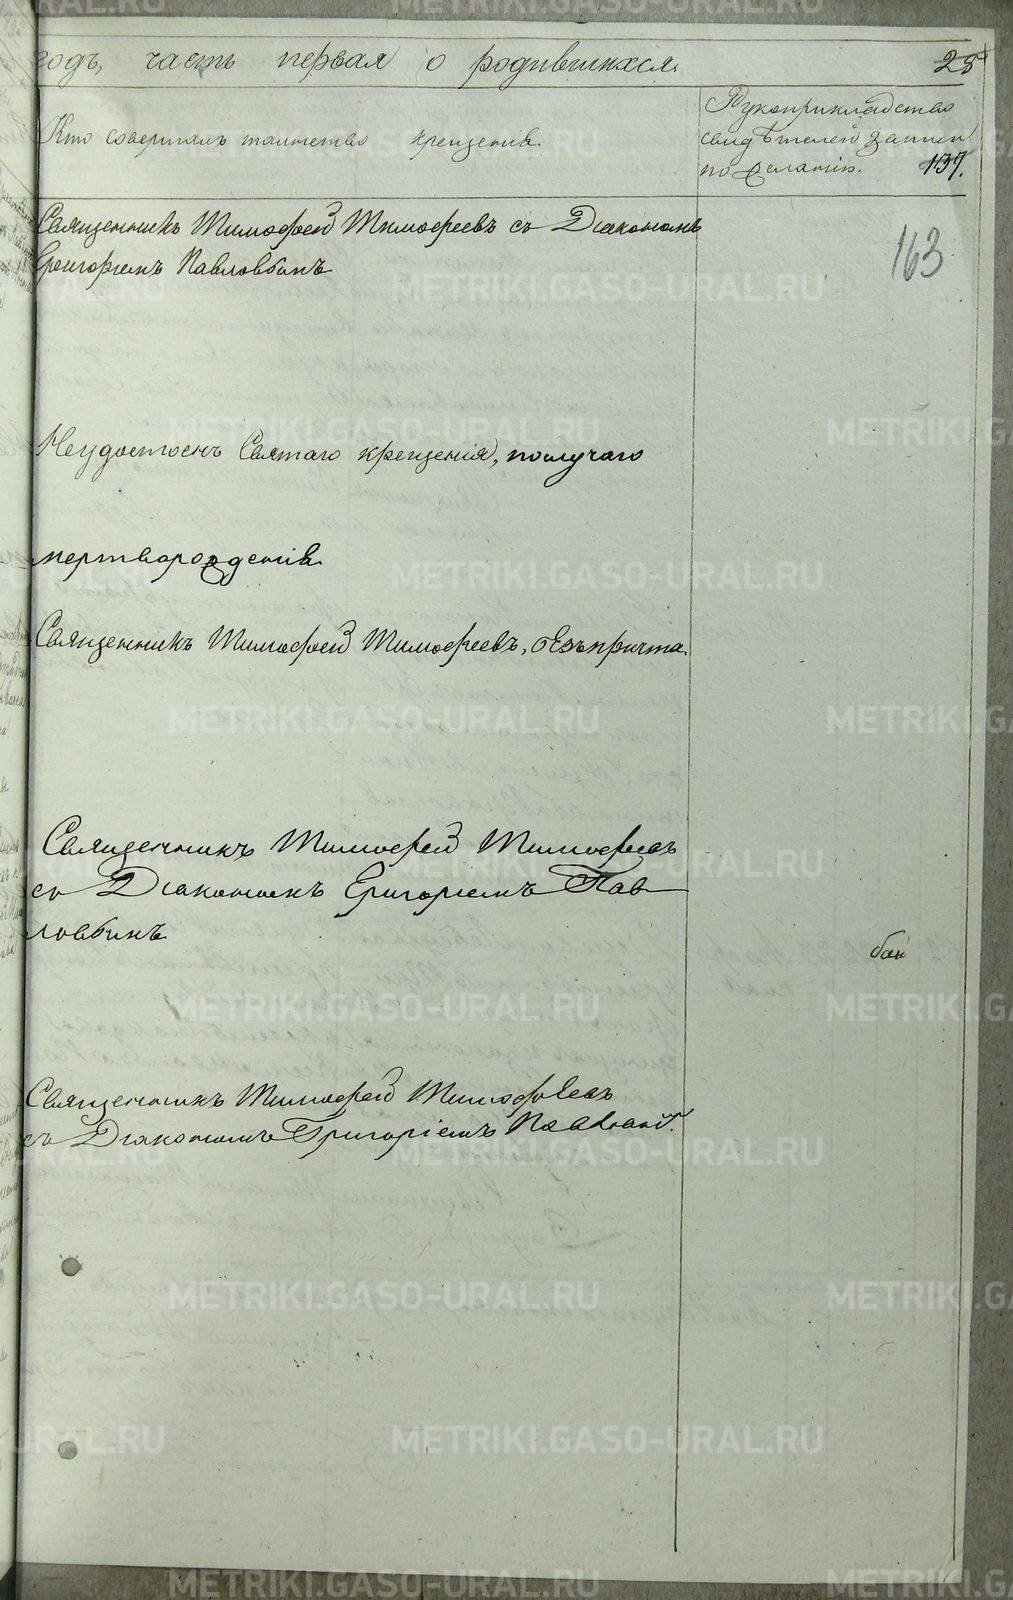 годъ, часть первая о родившихся. 25
Кто совершалъ таинство крещенія.
Рукоприкладство
свидѣтелей записи
по желанію. 137.
163
Священникъ Тимофей Тимофеевъ съ Діакономъ
Григоріемъ Павловымъ
Неудостоенъ Святаго крещенія, по случаю
мерторожденія.
Священникъ Тимофей Тимофеевъ, безъ причта.
Священникъ Тимофей Тимофеевъ
съ Діакономъ Григоріемъ Пав
ловымъ
Священникъ Тимофей Тимофеевъ
съ Діакономъ Григоріемъ
METRIKI.GASO-URAL.RU